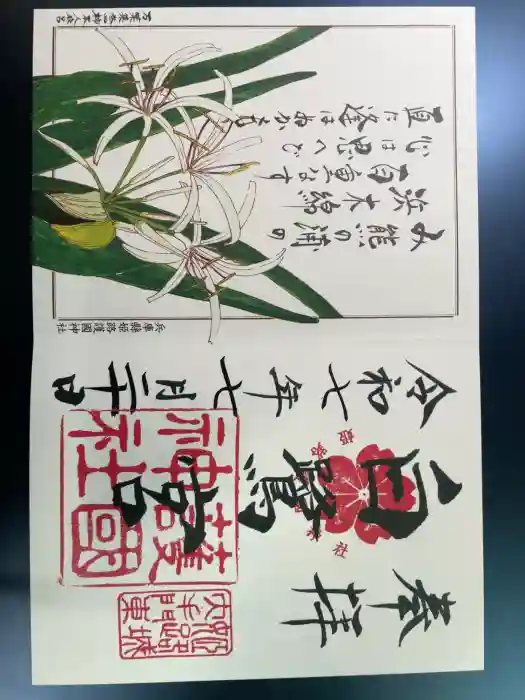 み熊野の浦の
浜木綿
百重なす
心は思へど
直に逢はぬかも
兵庫縣姫路護國神社
奉拝
白鷺宮
令和七年七月二十日
護國
神社
姫路城
大手門東